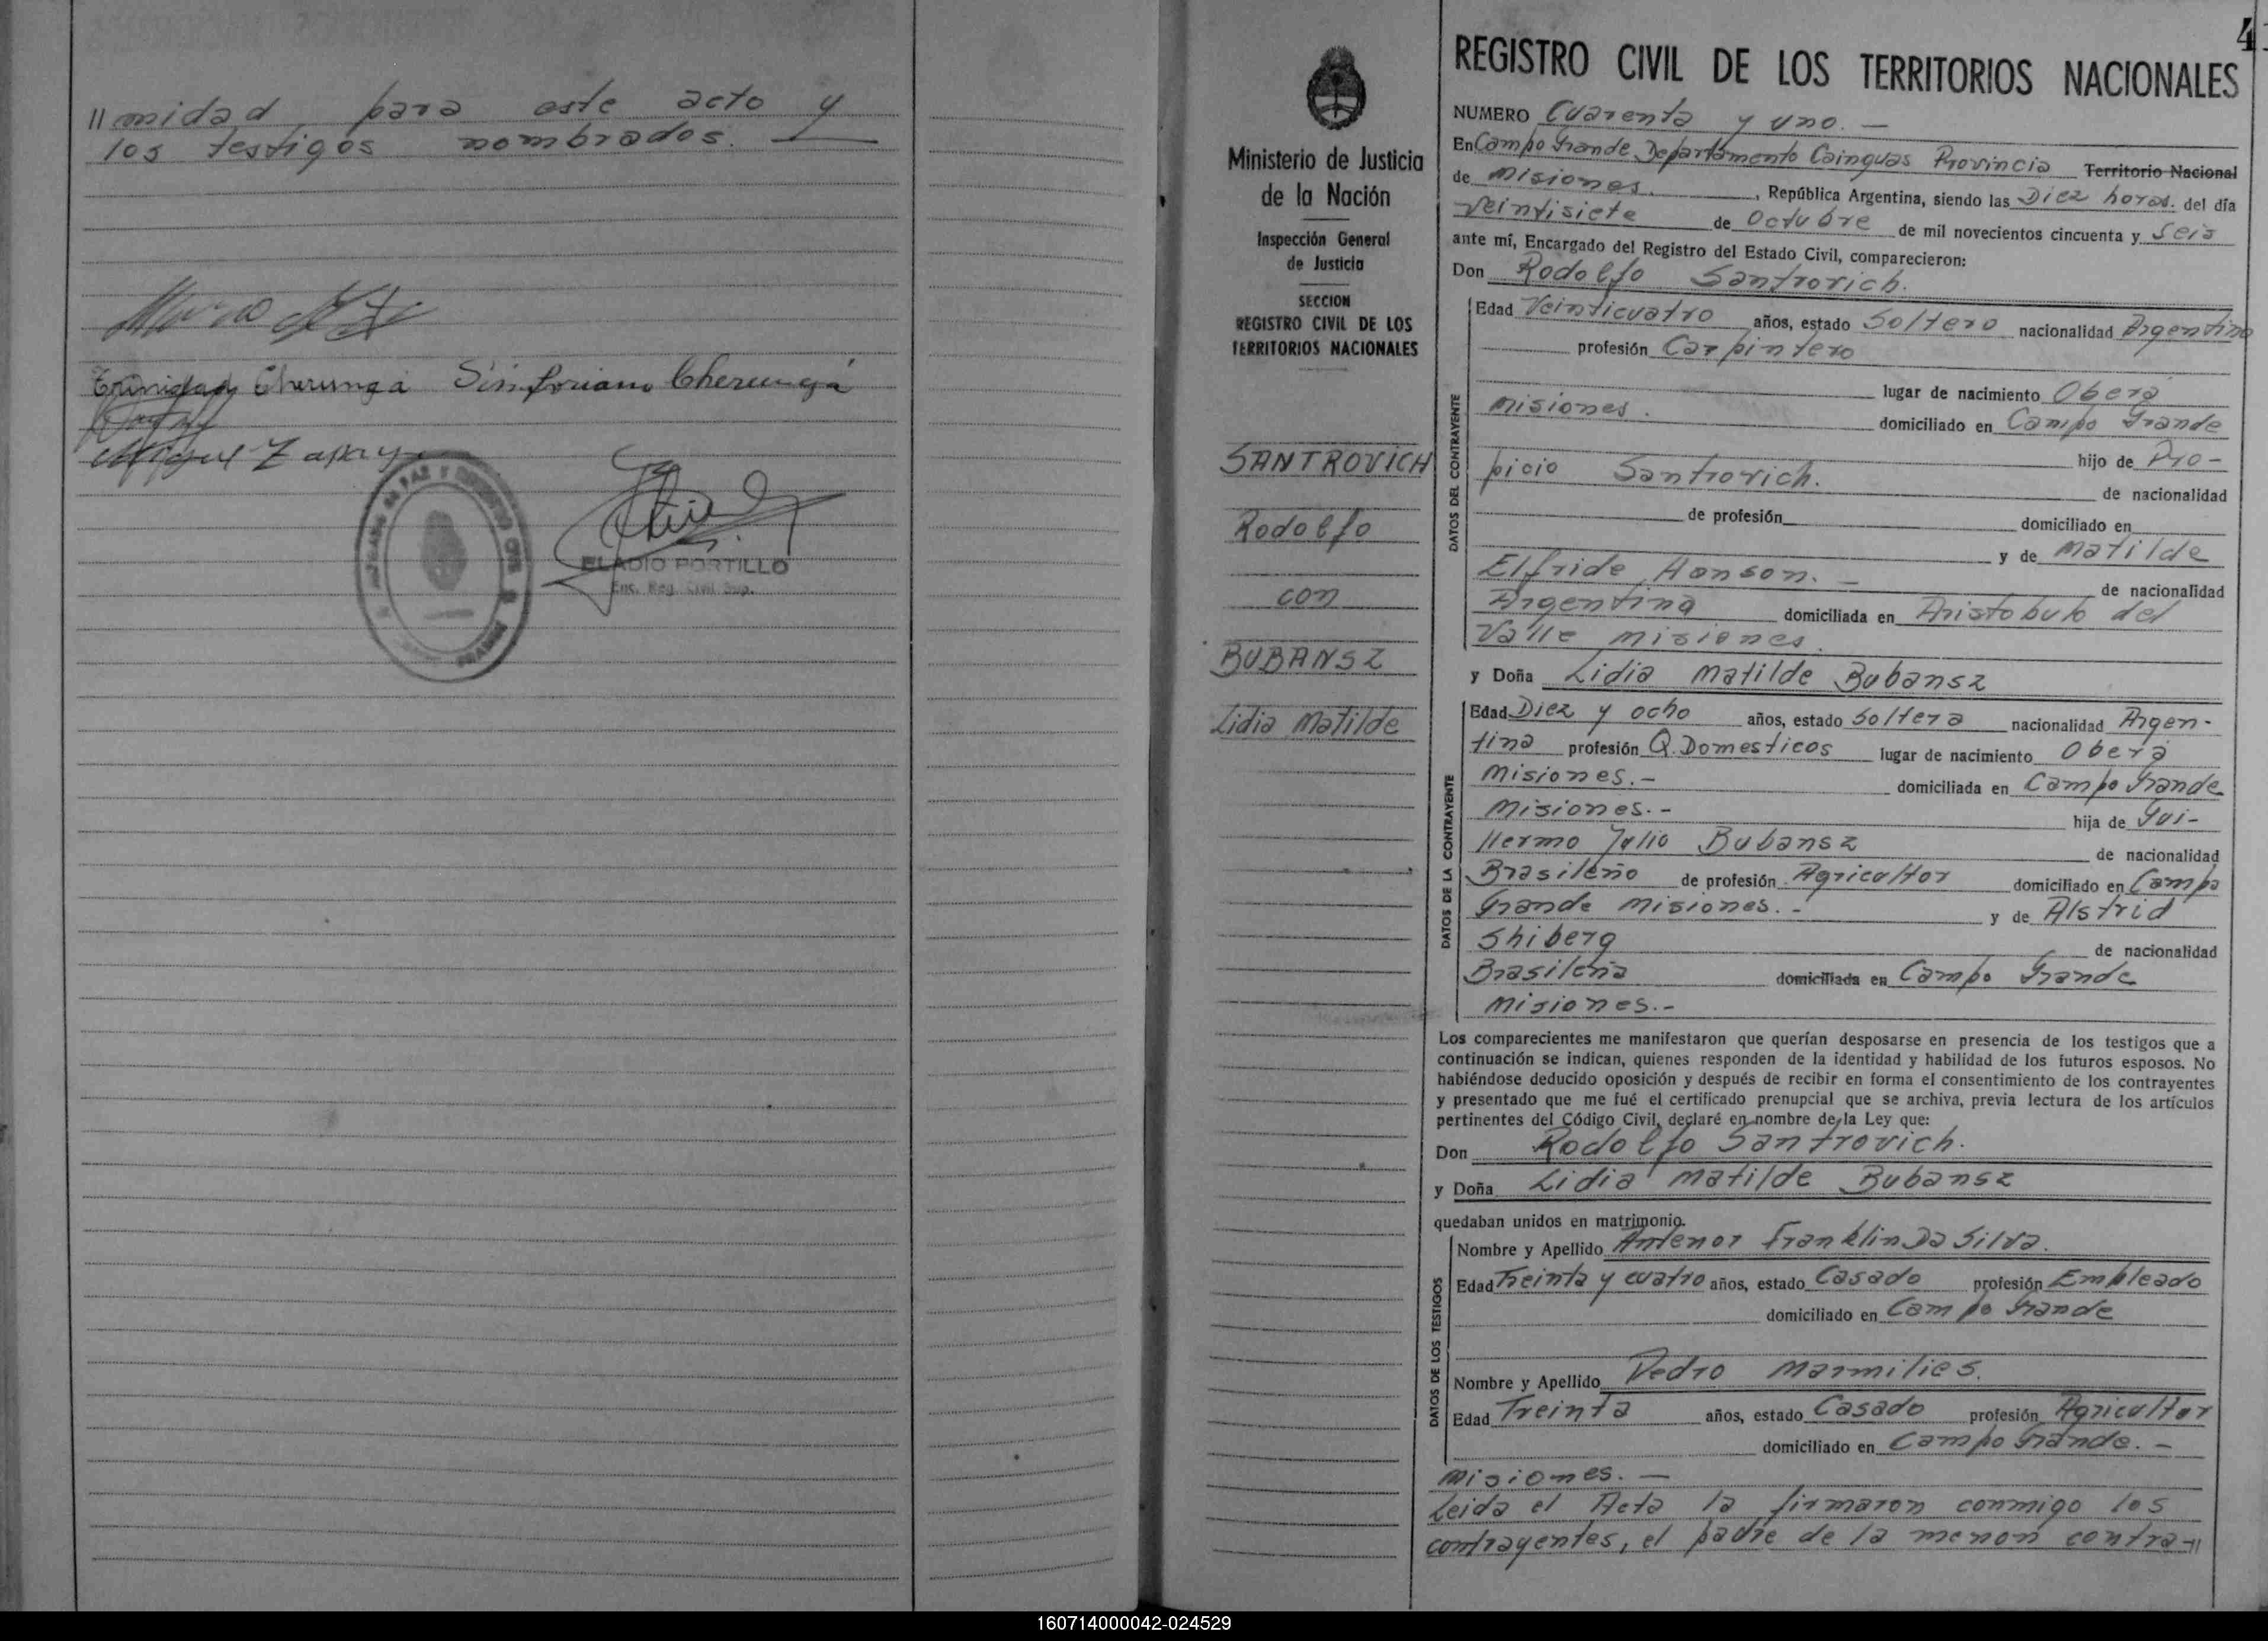 //midad para este acto y
los testigos nombrados.
Trinidad Cherunga Sinforiano Cherunga
Miguel Zapaya
ELADIO PORTILLO
Enc. Reg. Civil Sup.
41
Ministerio de Justicia
de la Nación
Inspección General
de Justicia
SECCION
REGISTRO CIVIL DE LOS
TERRITORIOS NACIONALES
SANTROVICH
Rodolfo
con
BUBANSZ
Lidia Matilde
REGISTRO CIVIL DE LOS TERRITORIOS NACIONALES
NUMERO Cuarenta y uno.-
En Campo Grande Departamento Cainguas Provincia Territorio Nacional
de Misiones. , República Argentina, siendo las Diez horas. del día
Veintisiete de Octubre de mil novecientos cincuenta y Seis
ante mí, Encargado del Registro del Estado Civil, comparecieron:
Don Rodolfo Santrovich.
DATOS DEL CONTRAYENTE
Edad Veinticuatro años, estado Soltero nacionalidad Argentino
profesión Carpintero
lugar de nacimiento Oberá
Misiones. domiciliado en Campo Grande
hijo de Pro-
picio Santrovich. de nacionalidad
de profesión domiciliado en
y de Matilde
Elfride Hanson.- de nacionalidad
Argentina domiciliada en Aristobulo del
Valle Misiones.
y Doña Lidia Matilde Bubansz
DATOS DE LA CONTRAYENTE
Edad Diez y ocho años, estado Soltera nacionalidad Argen-
tina profesión Q. Domesticos lugar de nacimiento Oberá
Misiones.- domiciliada en Campo Grande
Misiones.- hija de Gui-
llermo Julio Bubansz de nacionalidad
Brasileño de profesión Agricultor domiciliado en Campo
Grande Misiones.- y de Alstrid
Shiberg de nacionalidad
Brasileña domiciliada en Campo Grande
Misiones.-
Los comparecientes me manifestaron que querían desposarse en presencia de los testigos que a
continuación se indican, quienes responden de la identidad y habilidad de los futuros esposos. No
habiéndose deducido oposición y después de recibir en forma el consentimiento de los contrayentes
y presentado que me fué el certificado prenupcial que se archiva, previa lectura de los artículos
pertinentes del Código Civil, declaré en nombre de la Ley que:
Don Rodolfo Santrovich.
y Doña Lidia Matilde Bubansz
quedaban unidos en matrimonio.
DATOS DE LOS TESTIGOS
Nombre y Apellido Antenor Franklin Da Silva.
Edad Treinta y cuatro años, estado Casado profesión Empleado
domiciliado en Campo Grande
Nombre y Apellido Pedro Marmilies.
Edad Treinta años, estado Casado profesión Agricultor
domiciliado en Campo Grande.-
Misiones.-
Leida el Acta la firmaron conmigo los
contrayentes, el padre de la menon contra-//
160714000042-024529